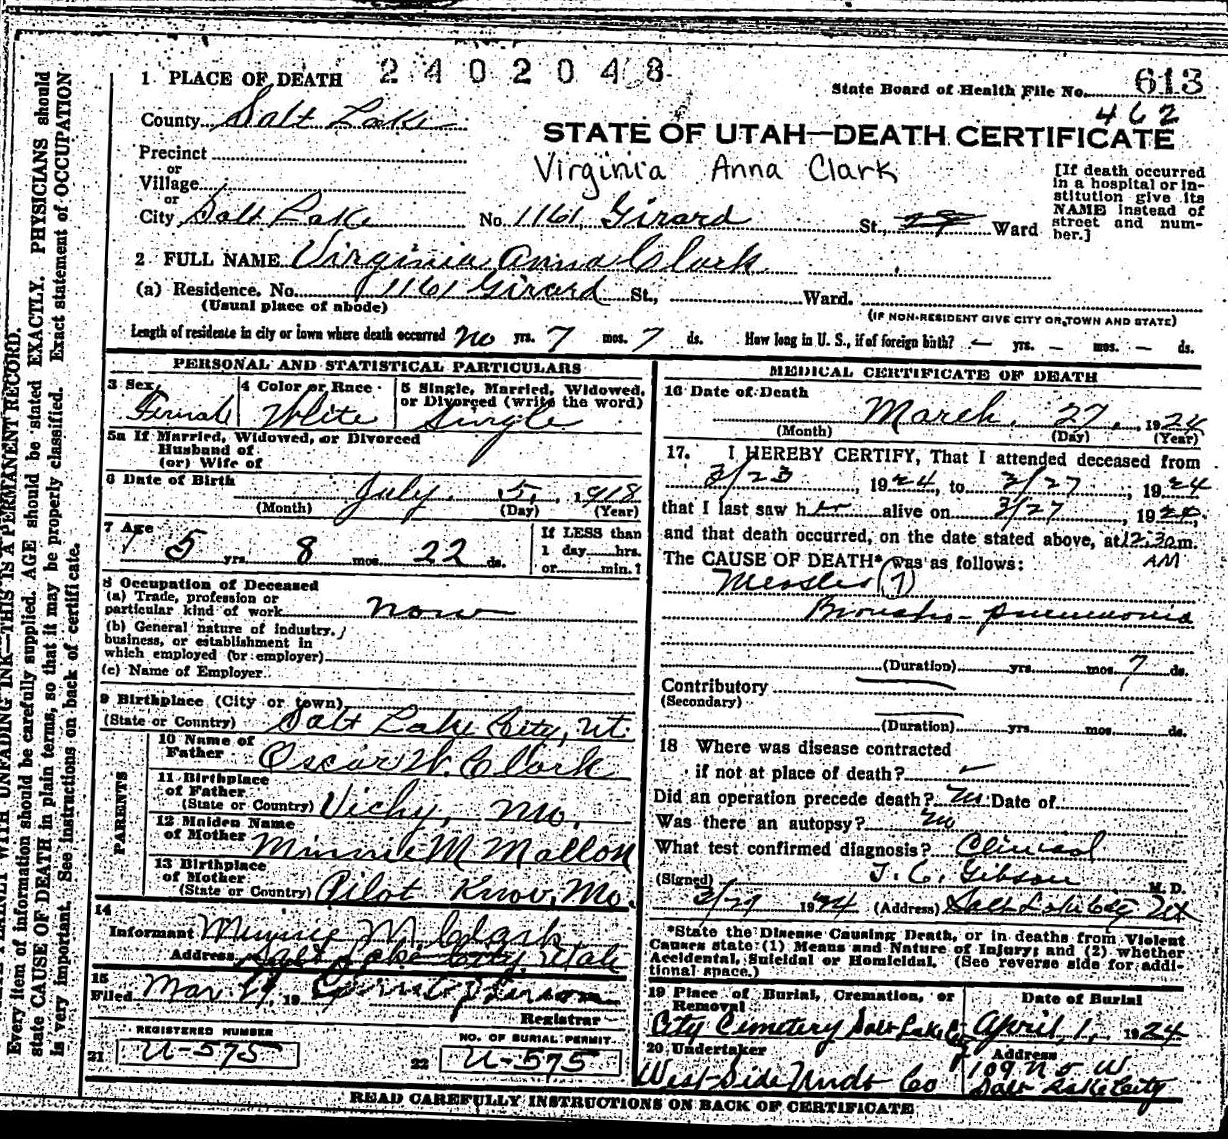 2402048
1 PLACE OF DEATH
State Board of Health File No. 613
462
County Salt Lake
STATE OF UTAH—DEATH CERTIFICATE
Precinct
or
Village
or
Virginia Anna Clark
[If death occurred in a hospital or institution give its NAME instead of street and number.]
City Salt Lake No. 1161 Girard St., Ward
2 FULL NAME Virginia Anna Clark
(a) Residence. No. 1161 Girard St., Ward.
(Usual place of abode) (IF NON-RESIDENT GIVE CITY OR TOWN AND STATE)
Length of residence in city or town where death occurred no yrs. 7 mos. 7 ds. How long in U. S., if of foreign birth? — yrs. — mos. — ds.
PERSONAL AND STATISTICAL PARTICULARS
3 Sex Female
4 Color or Race White
5 Single, Married, Widowed, or Divorced (write the word) Single
5a If Married, Widowed, or Divorced
Husband of
(or) Wife of
6 Date of Birth July 5, 1918
(Month) (Day) (Year)
7 Age 5 yrs. 8 mos. 22 ds.
If LESS than
1 day hrs.
or min.?
8 Occupation of Deceased
(a) Trade, profession or
particular kind of work none
(b) General nature of industry,
business, or establishment in
which employed (or employer)
(c) Name of Employer
9 Birthplace (City or town)
(State or Country) Salt Lake City, Ut.
PARENTS
10 Name of Father Oscar W. Clark
11 Birthplace of Father
(State or Country) Vichy, Mo.
12 Maiden Name of Mother Minnie M Mallon
13 Birthplace of Mother
(State or Country) Pilot Knov, Mo.
14
Informant Minnie M. Clark
Address Salt Lake City, Utah
15
Filed Mar. 29, 19
Registrar
REGISTERED NUMBER
21 U-575
NO. OF BURIAL PERMIT
22 U-575
MEDICAL CERTIFICATE OF DEATH
16 Date of Death
March 27, 1924
(Month) (Day) (Year)
17. I HEREBY CERTIFY, That I attended deceased from
3/23, 1924, to 3/27, 1924
that I last saw her alive on 3/27, 1924,
and that death occurred, on the date stated above, at 12.30 m.
AM
The CAUSE OF DEATH* was as follows:
Measles (7)
Broncho-pneumonia
(Duration) yrs. mos. 7 ds.
Contributory
(Secondary)
(Duration) yrs. mos. ds.
18 Where was disease contracted
if not at place of death?
Did an operation precede death? no Date of
Was there an autopsy? no
What test confirmed diagnosis? Clinical
(Signed) T. C. Gibson M. D.
3/29 1924 (Address) Salt Lake City Ut
*State the Disease Causing Death, or in deaths from Violent
Causes state (1) Means and Nature of Injury; and (2) whether
Accidental, Suicidal or Homicidal. (See reverse side for addi-
tional space.)
19 Place of Burial, Cremation, or Removal
City Cemetery Salt Lake C
Date of Burial
April, 1, 1924
20 Undertaker
West Side Undt Co
Address
109 N 5 W
Salt Lake City
READ CAREFULLY INSTRUCTIONS ON BACK OF CERTIFICATE
PLAINLY WITH UNFADING INK—THIS IS A PERMANENT RECORD.
Every item of information should be carefully supplied. AGE should be stated EXACTLY. PHYSICIANS should
state CAUSE OF DEATH in plain terms, so that it may be properly classified. Exact statement of OCCUPATION
is very important. See instructions on back of certificate.